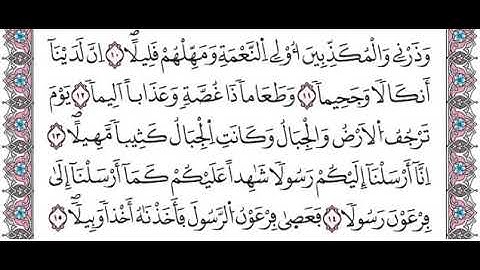 وَذَرْنِے وَالْمُكَذِّبِينَ أُوْلِے اِ۬لنَّعْمَةِ وَمَهِّلْهُمْ قَلِيلاًۖ ١٠ اِنَّ لَدَيْنَآ
أَنكَالاٗ وَجَحِيماٗ ١١ وَطَعَاماٗ ذَا غُصَّةٖ وَعَذَاباً اَلِيماٗ ١٢ يَوْمَ
تَرْجُفُ اُ۬لَارْضُ وَالْجِبَالُ وَكَانَتِ اِ۬لْجِبَالُ كَثِيباٗ مَّهِيلاًۖ ١٣
اِنَّآ أَرْسَلْنَآ إِلَيْكُمْ رَسُولاٗ شَٰهِداً عَلَيْكُمْ كَمَآ أَرْسَلْنَآ إِلَىٰ
فِرْعَوْنَ رَسُولاٗ ١٤ فَعَصَىٰ فِرْعَوْنُ اُ۬لرَّسُولَ فَأَخَذْنَٰهُ أَخْذاٗ وَبِيلاٗۖ ١٥